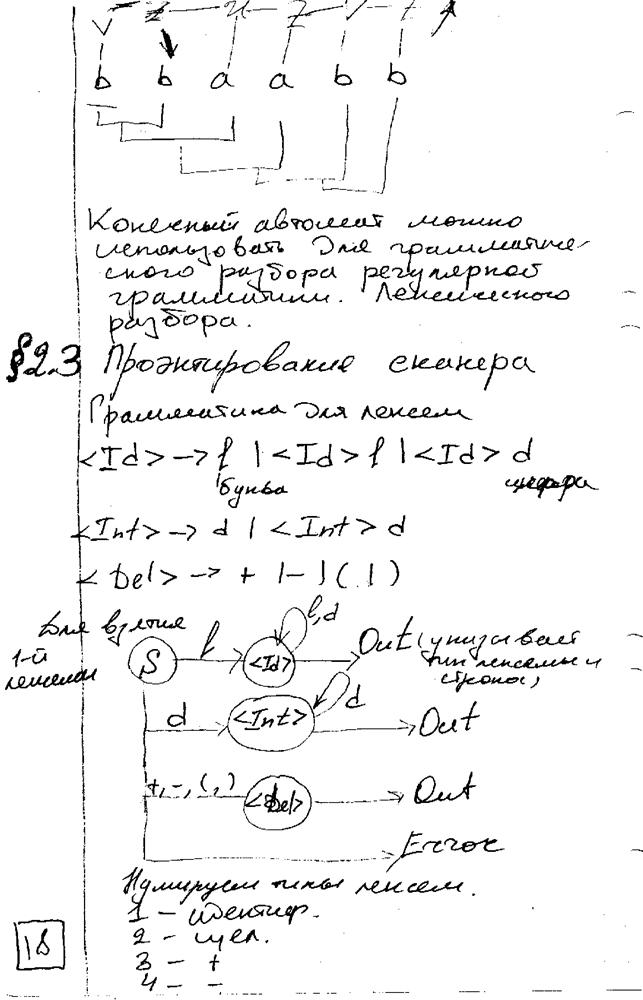 b b a a b b
Конечный автомат можно
использовать для грамматиче-
ского разбора регулярной
грамматики. Лексического
разбора.
§2.3 Проэктирование сканера
Грамматика для лексем
<Id> → l | <Id> l | <Id> d
буква цифра
<Int> → d | <Int> d
<Del> → + | - | ( | )
Для взятия
1-й
лексемы
S l <Id> l,d Out (указывает
тип лексемы и
строка)
d <Int> d Out
+,-,(,) <Del> Out
Error
Нумеруем типы лексем.
1 - идентиф.
2 - цел.
3 - +
4 - -
18